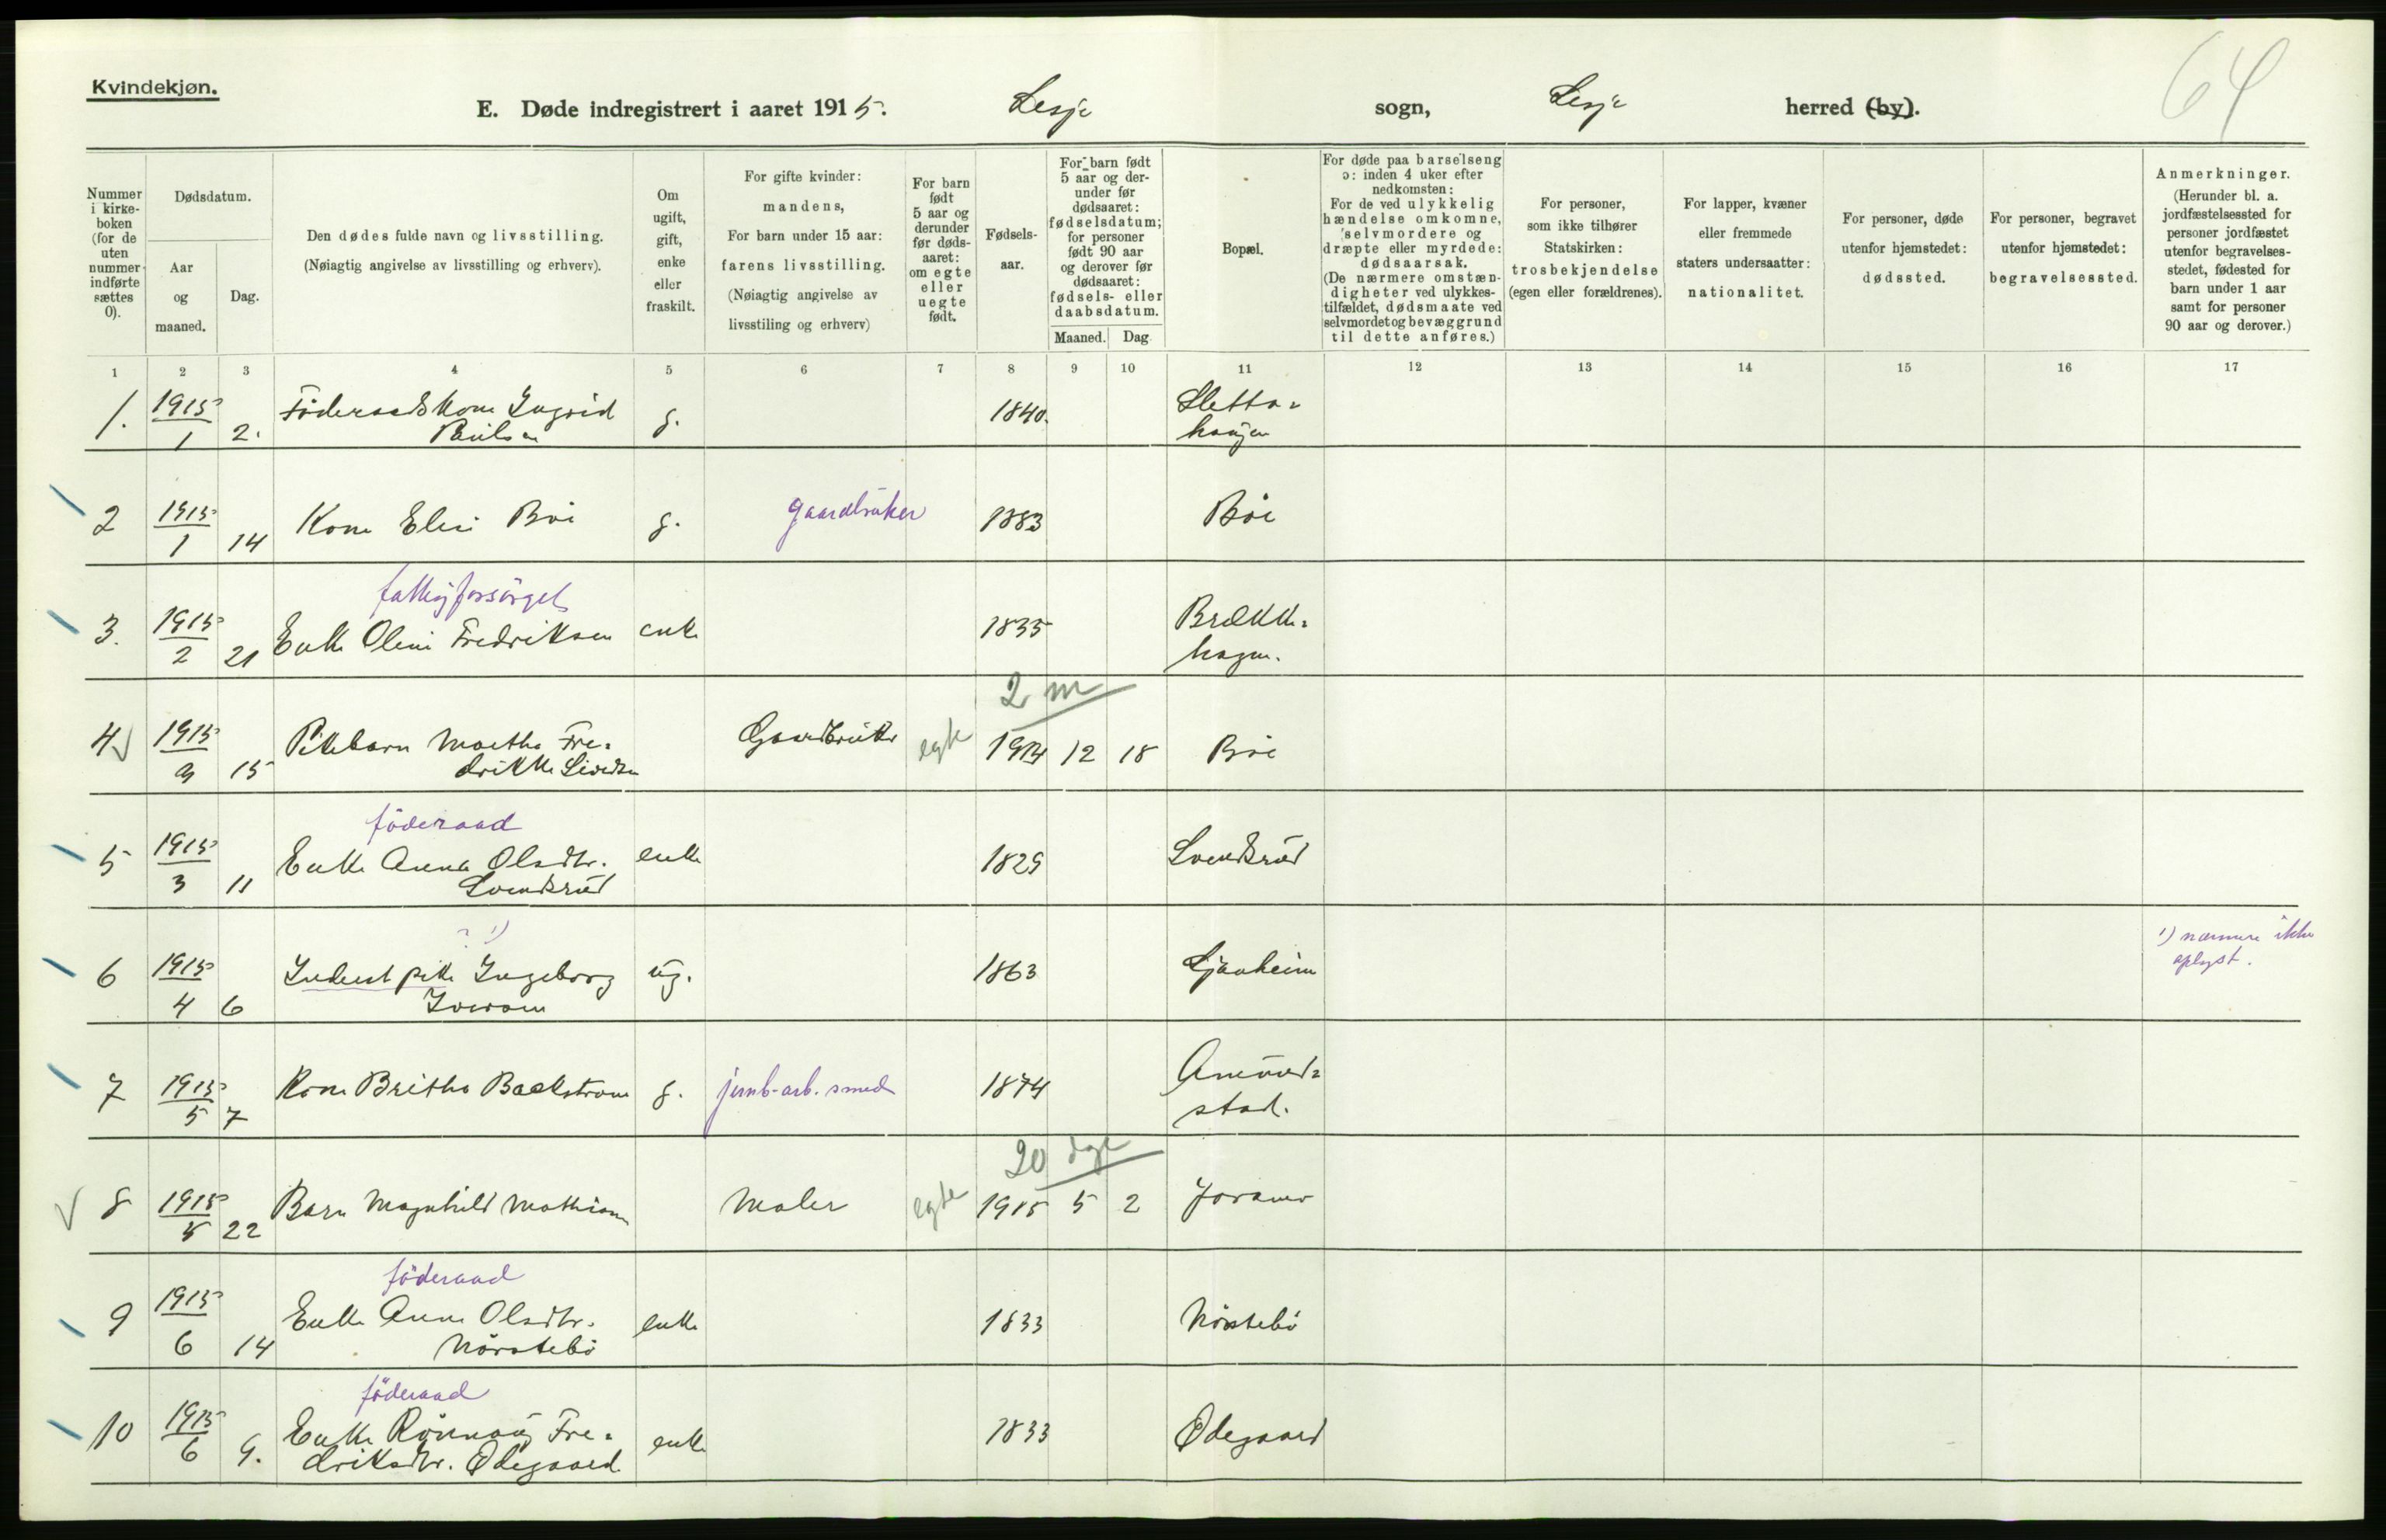 64
Kvindekjøn.
E. Døde indregistrert i aaret 1915. Lesje sogn, Lesje herred (by).
Nummer i kirke-boken (for de uten nummer indførte sættes 0).
Dødsdatum.
Aar og maaned.
Dag.
Den dødes fulde navn og livsstilling.
(Nøiagtig angivelse av livsstilling og erhverv).
Om ugift, gift, enke eller fraskilt.
For gifte kvinder:
mandens,
For barn under 15 aar:
farens livsstilling.
(Nøiagtig angivelse av
livsstiling og erhverv)
For barn født 5 aar og derunder før døds-aaret: om egte eller uegte født.
Fødsels-aar.
For barn født 5 aar og der-under før dødsaaret: fødselsdatum; for personer født 90 aar og derover før dødsaaret: fødsels- eller daabsdatum.
Maaned. Dag
Bopæl.
For døde paa barselseng
ɔ: inden 4 uker efter
nedkomsten:
For de ved ulykkelig
hændelse omkomne,
selvmordere og
dræpte eller myrdede:
dødsaarsak.
(De nærmere omstæn-
digheter ved ulykkes-
tilfældet, dødsmaate ved
selvmordet og bevæggrund
til dette anføres.)
For personer,
som ikke tilhører
Statskirken:
trosbekjendelse
(egen eller forældrenes).
For lapper, kvæner
eller fremmede
staters undersaatter:
nationalitet.
For personer, døde
utenfor hjemstedet:
dødssted.
For personer, begravet
utenfor hjemstedet:
begravelsessted.
Anmerkninger.
(Herunder bl. a.
jordfæstelsessted for
personer jordfæstet
utenfor begravelses-
stedet, fødested for
barn under 1 aar
samt for personer
90 aar og derover.)
1 2 3 4 5 6 7 8 9 10 11 12 13 14 15 16 17
1. 1915/1 2. Föderaadskone Ingrid g. 1840. Sletta-
Paulsen haugen
2 1915/1 14 Kone Eli Böe g. gaardbruker 1883 Böe
fattigforsörget
3. 1915/2 21 Enke Oline Fredriksen enke 1835 Brække-
hagen.
2 m
4 1915 15 Pikebarn Marthe Fre- Gaardbruker egte 1914 12 18 Böe
drikke
föderaad
5 1915/3 11 Enke Anna Olsdtr. enke 1829 Svendsrud
Svendsrud
? 1) 1) nærmere ikke
oplyst.
6 1915/4 6 Inderst pike Ingeborg ug. 1863
Iverson
7 1915/5 7 Kone Britha Backstrom g. jernb-arb. smed 1874
stad.
20 dge
8 1915/5 22 Barn Magnhild Mathisen Maler egte 1915 5 2
föderaad
9 1915/6 14 Enke Anne Olsdtr. enke 1833 Nörstebö
Nörstebö
föderaad
10 1915/6 9. Enke Rönnaug Fre- enke 1833 Ödegaard
driksdtr. Ödegaard